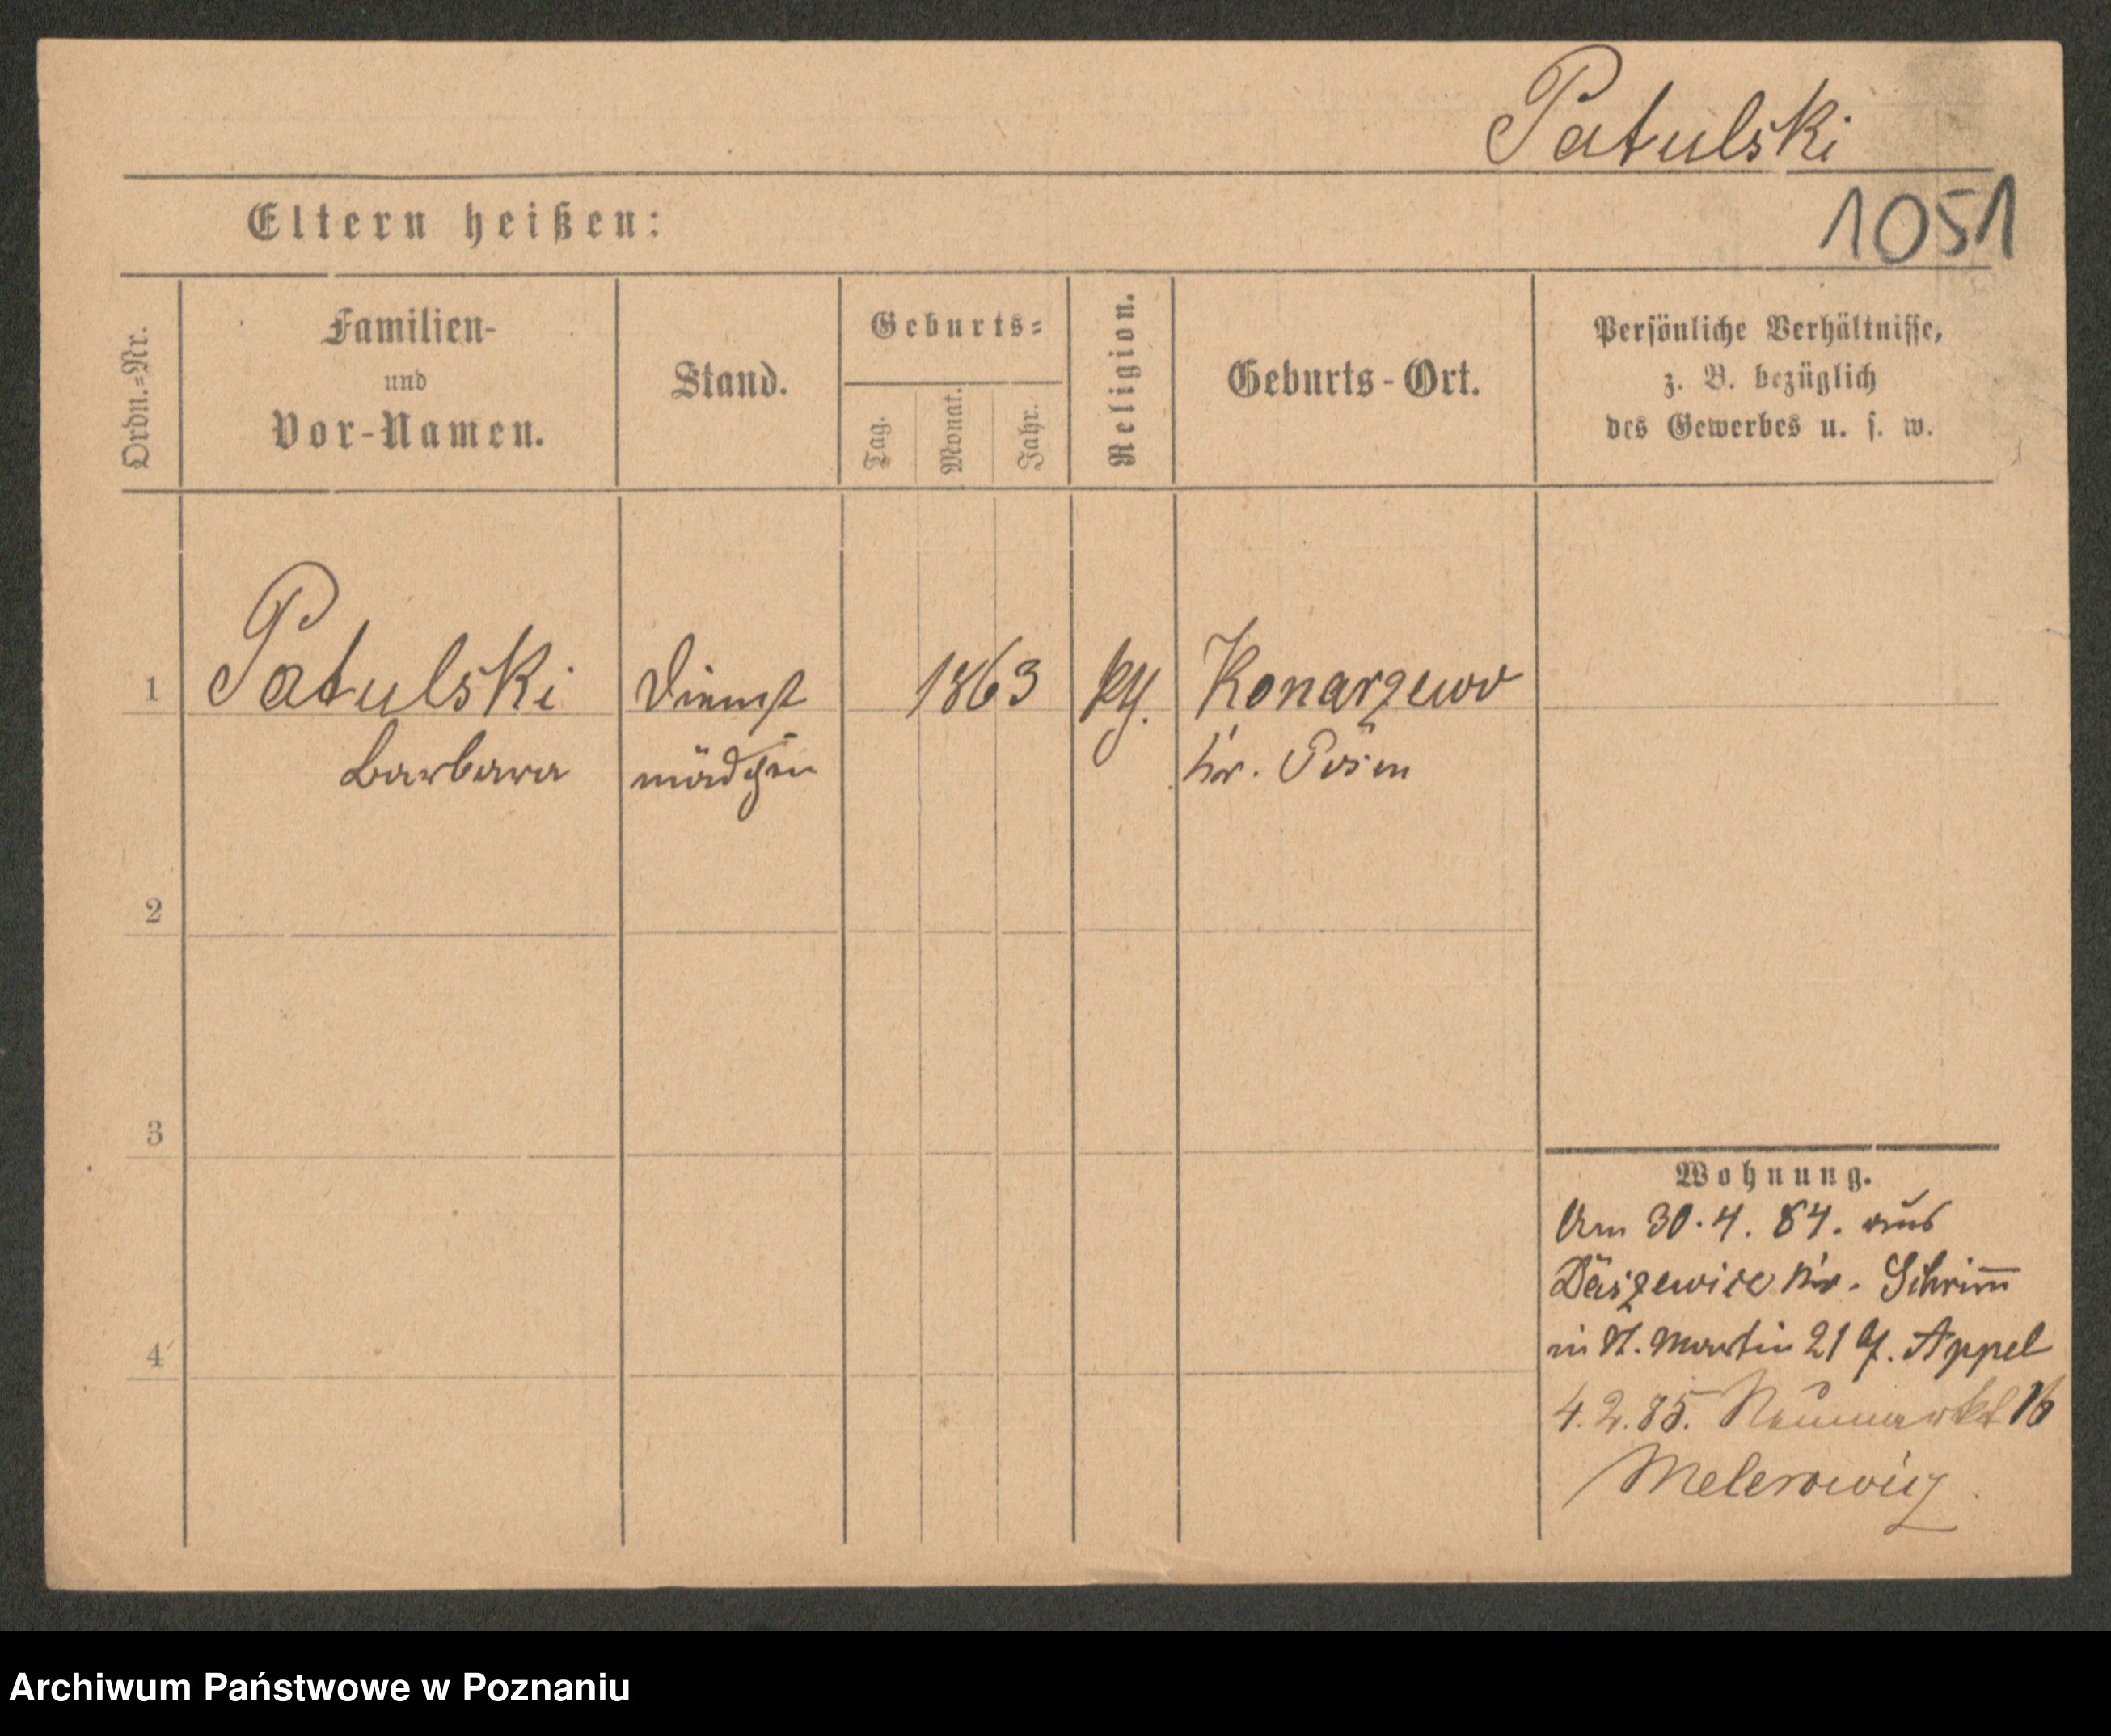 Patulski
1051
Eltern heißen:
Ordn.=Nr.
Familien-
und
Vor-Namen.
Stand.
Geburts=
Tag.
Monat.
Jahr.
Religion.
Geburts-Ort.
Persönliche Verhältnisse,
z. B. bezüglich
des Gewerbes u. s. w.
1
Patulski
Dienst
1863
Konarzewo
Barbara
mädchen
Kr. Posen
2
3
4
Wohnung.
Am 30.4.84. aus
Kr. Schrimm
in St. Martin 21 Appel
4.2.85. Neumarkt 16
Archiwum Państwowe w Poznaniu